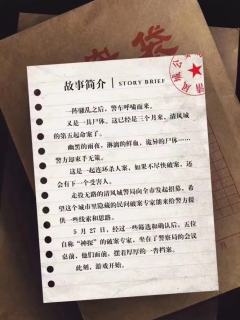 故事简介 | STORY BRIEF
一阵骚乱之后，警车呼啸而来。
又是一具尸体。这已经是三个月来，清风城
的第五起命案了。
幽黑的雨夜、淋漓的鲜血、诡异的尸体……
警方却束手无策。
这是一起连环杀人案，如果不尽快破案，还
会有下一个受害人。
走投无路的清风城警局向全市发起招募，希
望这个城市里隐藏的民间破案专家能来给警方提
供一些线索和思路。
5 月 27 日，经过一些筛选和确认后，五位
自称“神探”的破案专家，坐在了警察局的会议
桌前，他们面前，摆着厚厚的一沓档案。
此刻，游戏开始。
清风城公
袋